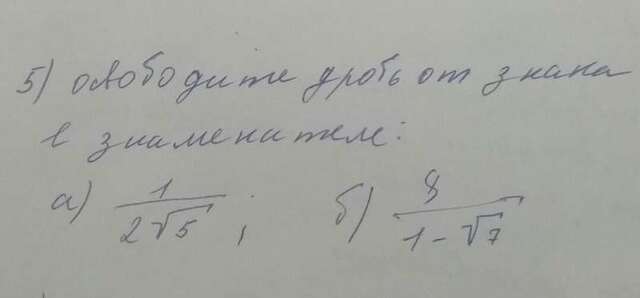 5) освободите дробь от знака
в знаменателе:
а) 1/(2√5); б) 8/(1-√7)